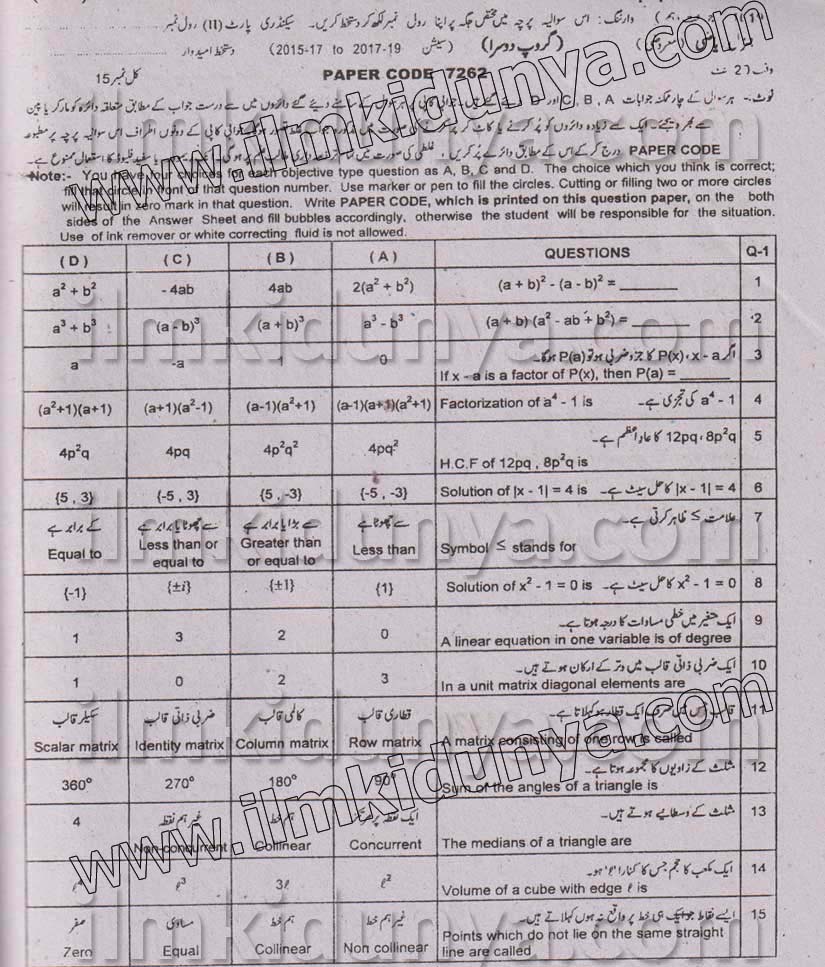 وارننگ: اس سوالیہ پرچہ میں مختص جگہ پر اپنا رول نمبر لکھ کر دستخط کریں۔ سیکنڈری پارٹ (II) رول نمبر
ریاضی (معروضی) (گروپ دوسرا) (سیشن 2015-17 to 2017-19) دستخط امیدوار
وقت 20 منٹ PAPER CODE 7262 کل نمبر 15
نوٹ:- ہر سوال کے چار ممکنہ جوابات A ، B ، C اور D دیئے گئے ہیں۔ جوابی کاپی پر ہر سوال کے سامنے دیئے گئے دائروں میں سے درست جواب کے مطابق متعلقہ دائرہ کو مارکر یا پین
سے بھر دیجئے۔ ایک سے زیادہ دائروں کو پُر کرنے یا کاٹ کر پُر کرنے کی صورت میں جوابی کاپی کے دونوں اطراف اس سوالیہ پرچہ پر مطبوعہ
PAPER CODE درج کر کے اس کے مطابق دائرے پُر کریں۔ غلطی کی صورت میں تمام تر ذمہ داری طالب علم پر ہو گی۔ سفید فلیوڈ کا استعمال ممنوع ہے۔
Note:- You have four choices for each objective type question as A, B, C and D. The choice which you think is correct;
fill that circle in front of that question number. Use marker or pen to fill the circles. Cutting or filling two or more circles
will result in zero mark in that question. Write PAPER CODE, which is printed on this question paper, on the both
sides of the Answer Sheet and fill bubbles accordingly, otherwise the student will be responsible for the situation.
Use of ink remover or white correcting fluid is not allowed.
(D) (C) (B) (A) QUESTIONS Q-1
a² + b² - 4ab 4ab 2(a² + b²) (a + b)² - (a - b)² = ______ 1
a³ + b³ (a - b)³ (a + b)³ a³ - b³ (a + b) (a² - ab + b²) = ______ 2
اگر x - a ، P(x) کا جزو ضربی ہو تو P(a) ہوگا۔ 3
a -a 1 0 If x - a is a factor of P(x), then P(a) = ______
(a²+1)(a+1) (a+1)(a²-1) (a-1)(a²+1) (a-1)(a+1)(a²+1) Factorization of a⁴ - 1 is a⁴ - 1 کی تجزی ہے۔ 4
12pq ، 8p²q کا عاد اعظم ہے۔ 5
4p²q 4pq 4p²q² 4pq² H.C.F of 12pq , 8p²q is
{5 , 3} {-5 , 3} {5 , -3} {-5 , -3} Solution of |x - 1| = 4 is |x - 1| = 4 کا حل سیٹ ہے۔ 6
کے برابر ہے سے چھوٹا یا برابر ہے سے بڑا یا برابر ہے سے چھوٹا ہے علامت ≤ ظاہر کرتی ہے۔ 7
Equal to Less than or equal to Greater than or equal to Less than Symbol ≤ stands for
{-1} {±i} {±1} {1} Solution of x² - 1 = 0 is x² - 1 = 0 کا حل سیٹ ہے۔ 8
ایک متغیر میں خطی مساوات کا درجہ ہوتا ہے۔ 9
1 3 2 0 A linear equation in one variable is of degree
ایک ضربی ذاتی قالب میں وتر کے ارکان ہوتے ہیں۔ 10
1 0 2 3 In a unit matrix diagonal elements are
سکیلر قالب ضربی ذاتی قالب کالمی قالب قطاری قالب قالب جس میں صرف ایک قطار ہو کہلاتا ہے۔ 11
Scalar matrix Identity matrix Column matrix Row matrix A matrix consisting of one row is called
مثلث کے زاویوں کا مجموعہ ہوتا ہے۔ 12
360° 270° 180° 90° Sum of the angles of a triangle is
4 غیر ہم نقطہ ہم خط ایک نقطہ پر مثلث کے وسطانیے ہوتے ہیں۔ 13
Non-concurrent Collinear Concurrent The medians of a triangle are
ایک مکعب کا حجم جس کا کنارا 'ℓ' ہو۔ 14
ℓ⁴ ℓ³ 3ℓ ℓ² Volume of a cube with edge ℓ is
صفر مساوی ہم خط غیر ہم خط ایسے نقاط جو ایک ہی خط پر واقع نہ ہوں کہلاتے ہیں۔ 15
Zero Equal Collinear Non collinear Points which do not lie on the same straight
line are called
www.ilmkidunya.com
www.ilmkidunya.com
ilmkidunya.com
ilmkidunya.com
ilmkidunya.com
ilmkidunya.com
ilmkidunya.com
ilmkidunya.com